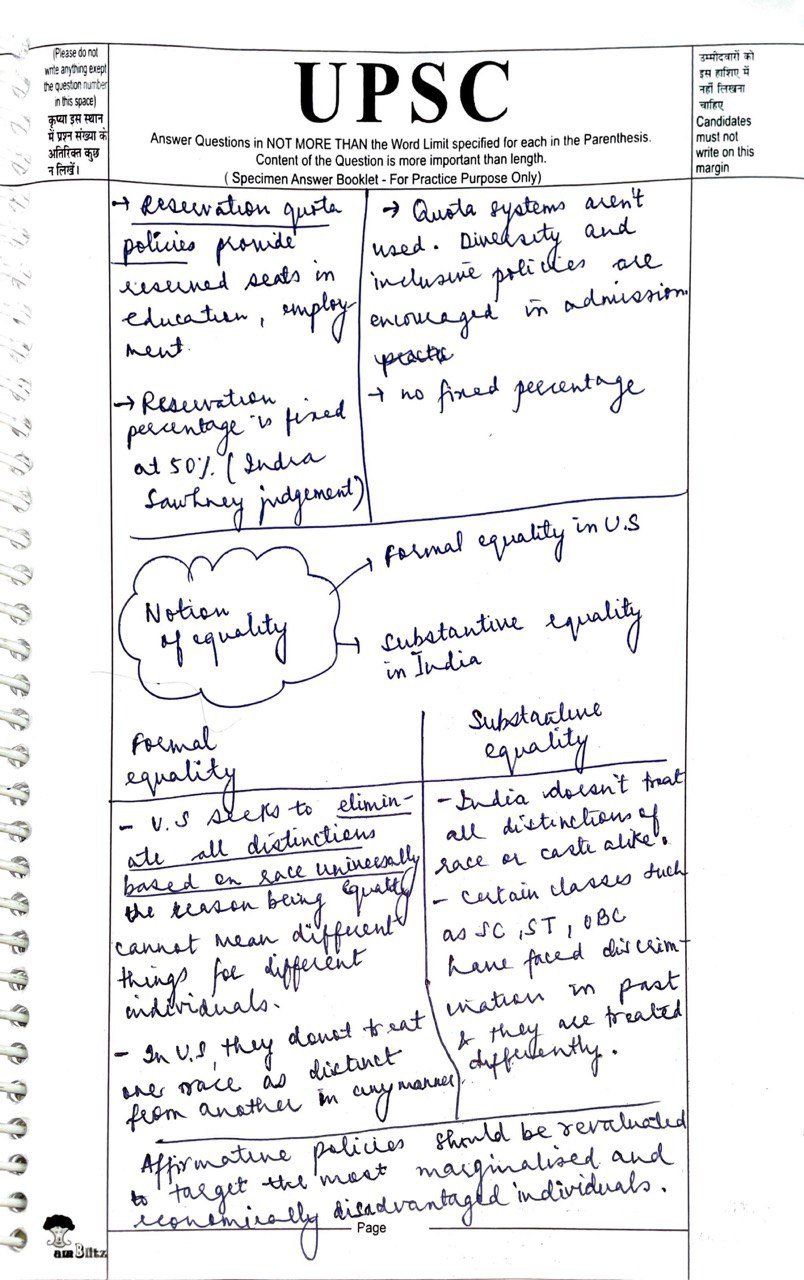 (Please do not
write anything exept
the question number
in this space)
कृप्या इस स्थान
में प्रश्न संख्या के
अतिरिक्त कुछ
न लिखें।
UPSC
Answer Questions in NOT MORE THAN the Word Limit specified for each in the Parenthesis.
Content of the Question is more important than length.
( Specimen Answer Booklet - For Practice Purpose Only)
उम्मीदवारों को
इस हाशिए में
नहीं लिखना
चाहिए
Candidates
must not
write on this
margin
→ Reservation quota
policies provide
reserved seats in
education, employ-
ment.
→ Reservation
percentage is fixed
at 50%. (Indra
Sawhney judgement)
→ Quota systems aren't
used. Diversity and
inclusive policies are
encouraged in admission.
→ no fixed percentage
Notion
of equality
→ Formal equality in U.S
→ Substantive equality
in India
Formal
equality
- U.S seeks to elimin-
ate all distinctions
based on race universally
the reason being equality
cannot mean different
things for different
individuals.
- In U.S, they donot treat
one race as distinct
from another in any manner.
Substantive
equality
- India doesn't treat
all distinctions of
race or caste alike.
- Certain classes such
as SC, ST, OBC
have faced discrim-
ination in past
& they are treated
differently.
Affirmative policies should be revaluated
to target the most marginalised and
economically disadvantaged individuals.
Page